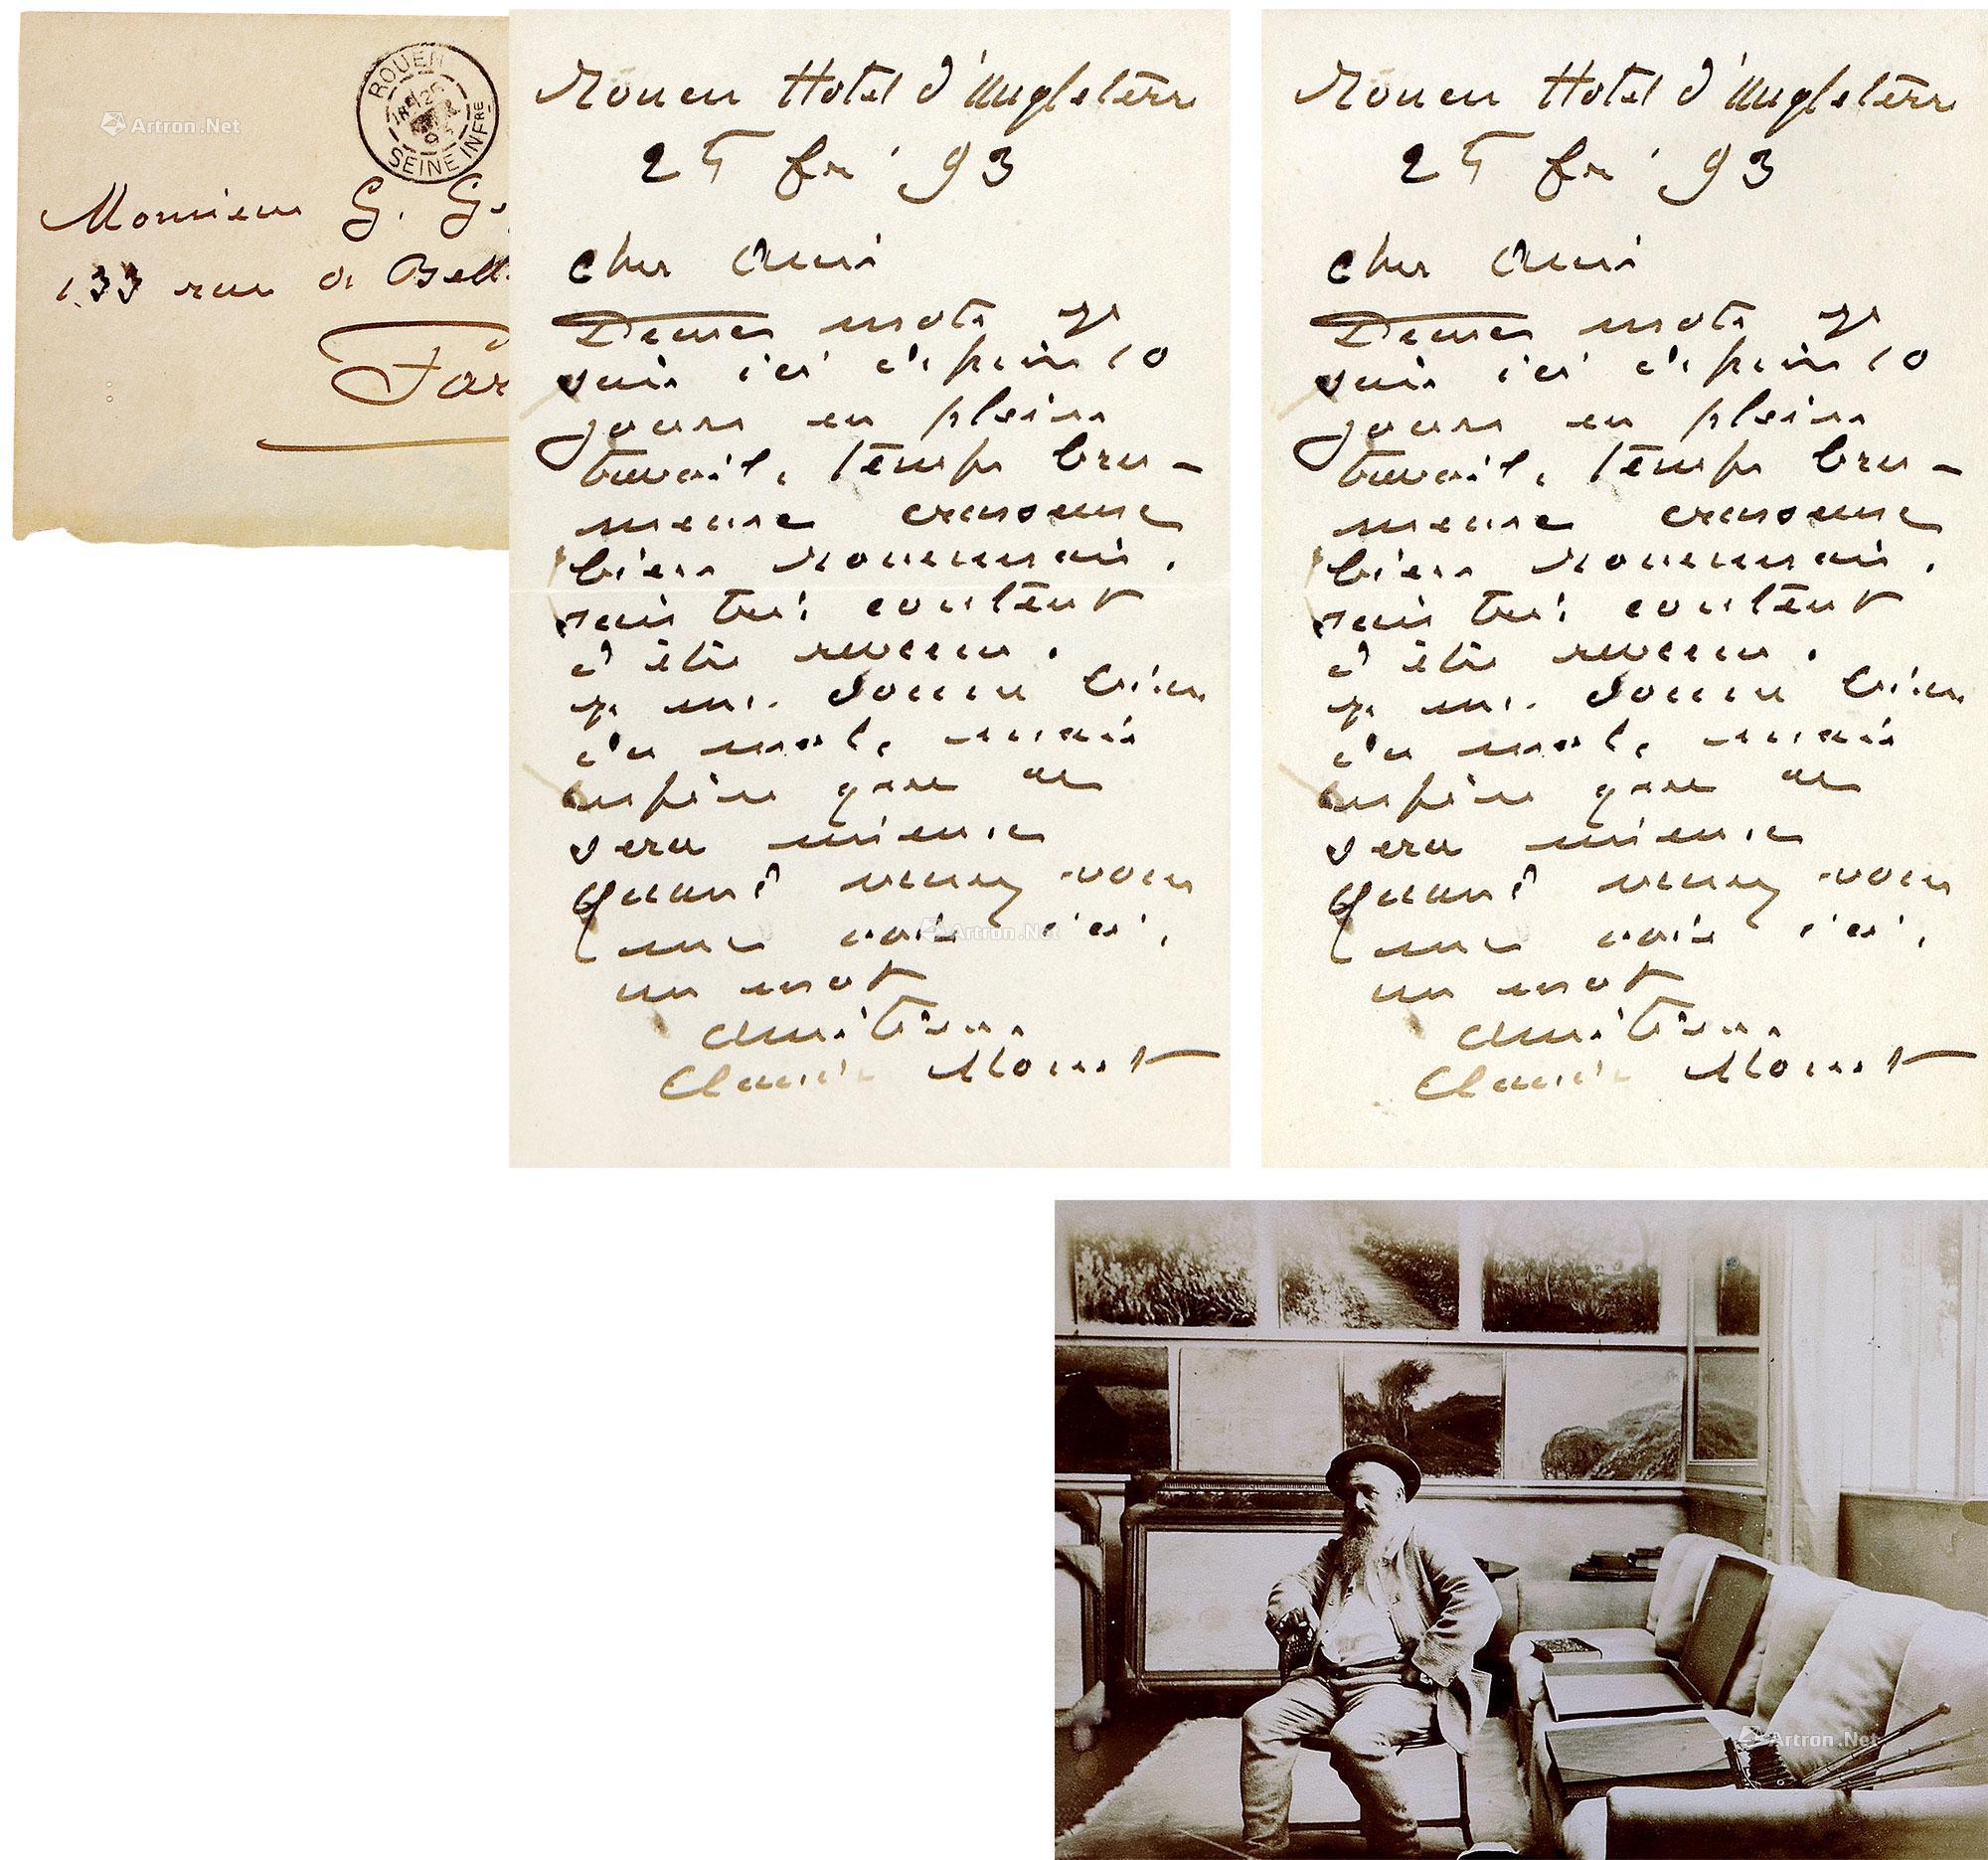 ROUEN
SEINE INFRE
Monsieur G. G
133 rue de Bell
Par
Rouen Hotel d'Angleterre
25 fev 93
Cher Ami
Deux mots je
suis ici depuis 10
jours en plein
travail, temps bru-
meux
bien
suis très content
d'être revenu.
je me donne bien
du mal, mais
espère que ce
sera mieux
Quand venez vous
me voir ici,
un mot
amitiés.
Claude Monet
Rouen Hotel d'Angleterre
25 fev 93
Cher Ami
Deux mots je
suis ici depuis 10
jours en plein
travail, temps bru-
meux
bien
suis très content
d'être revenu.
je me donne bien
du mal, mais
espère que ce
sera mieux
Quand venez vous
me voir ici,
un mot
amitiés.
Claude Monet
Artron.Net
Artron.Net
Artron.Net